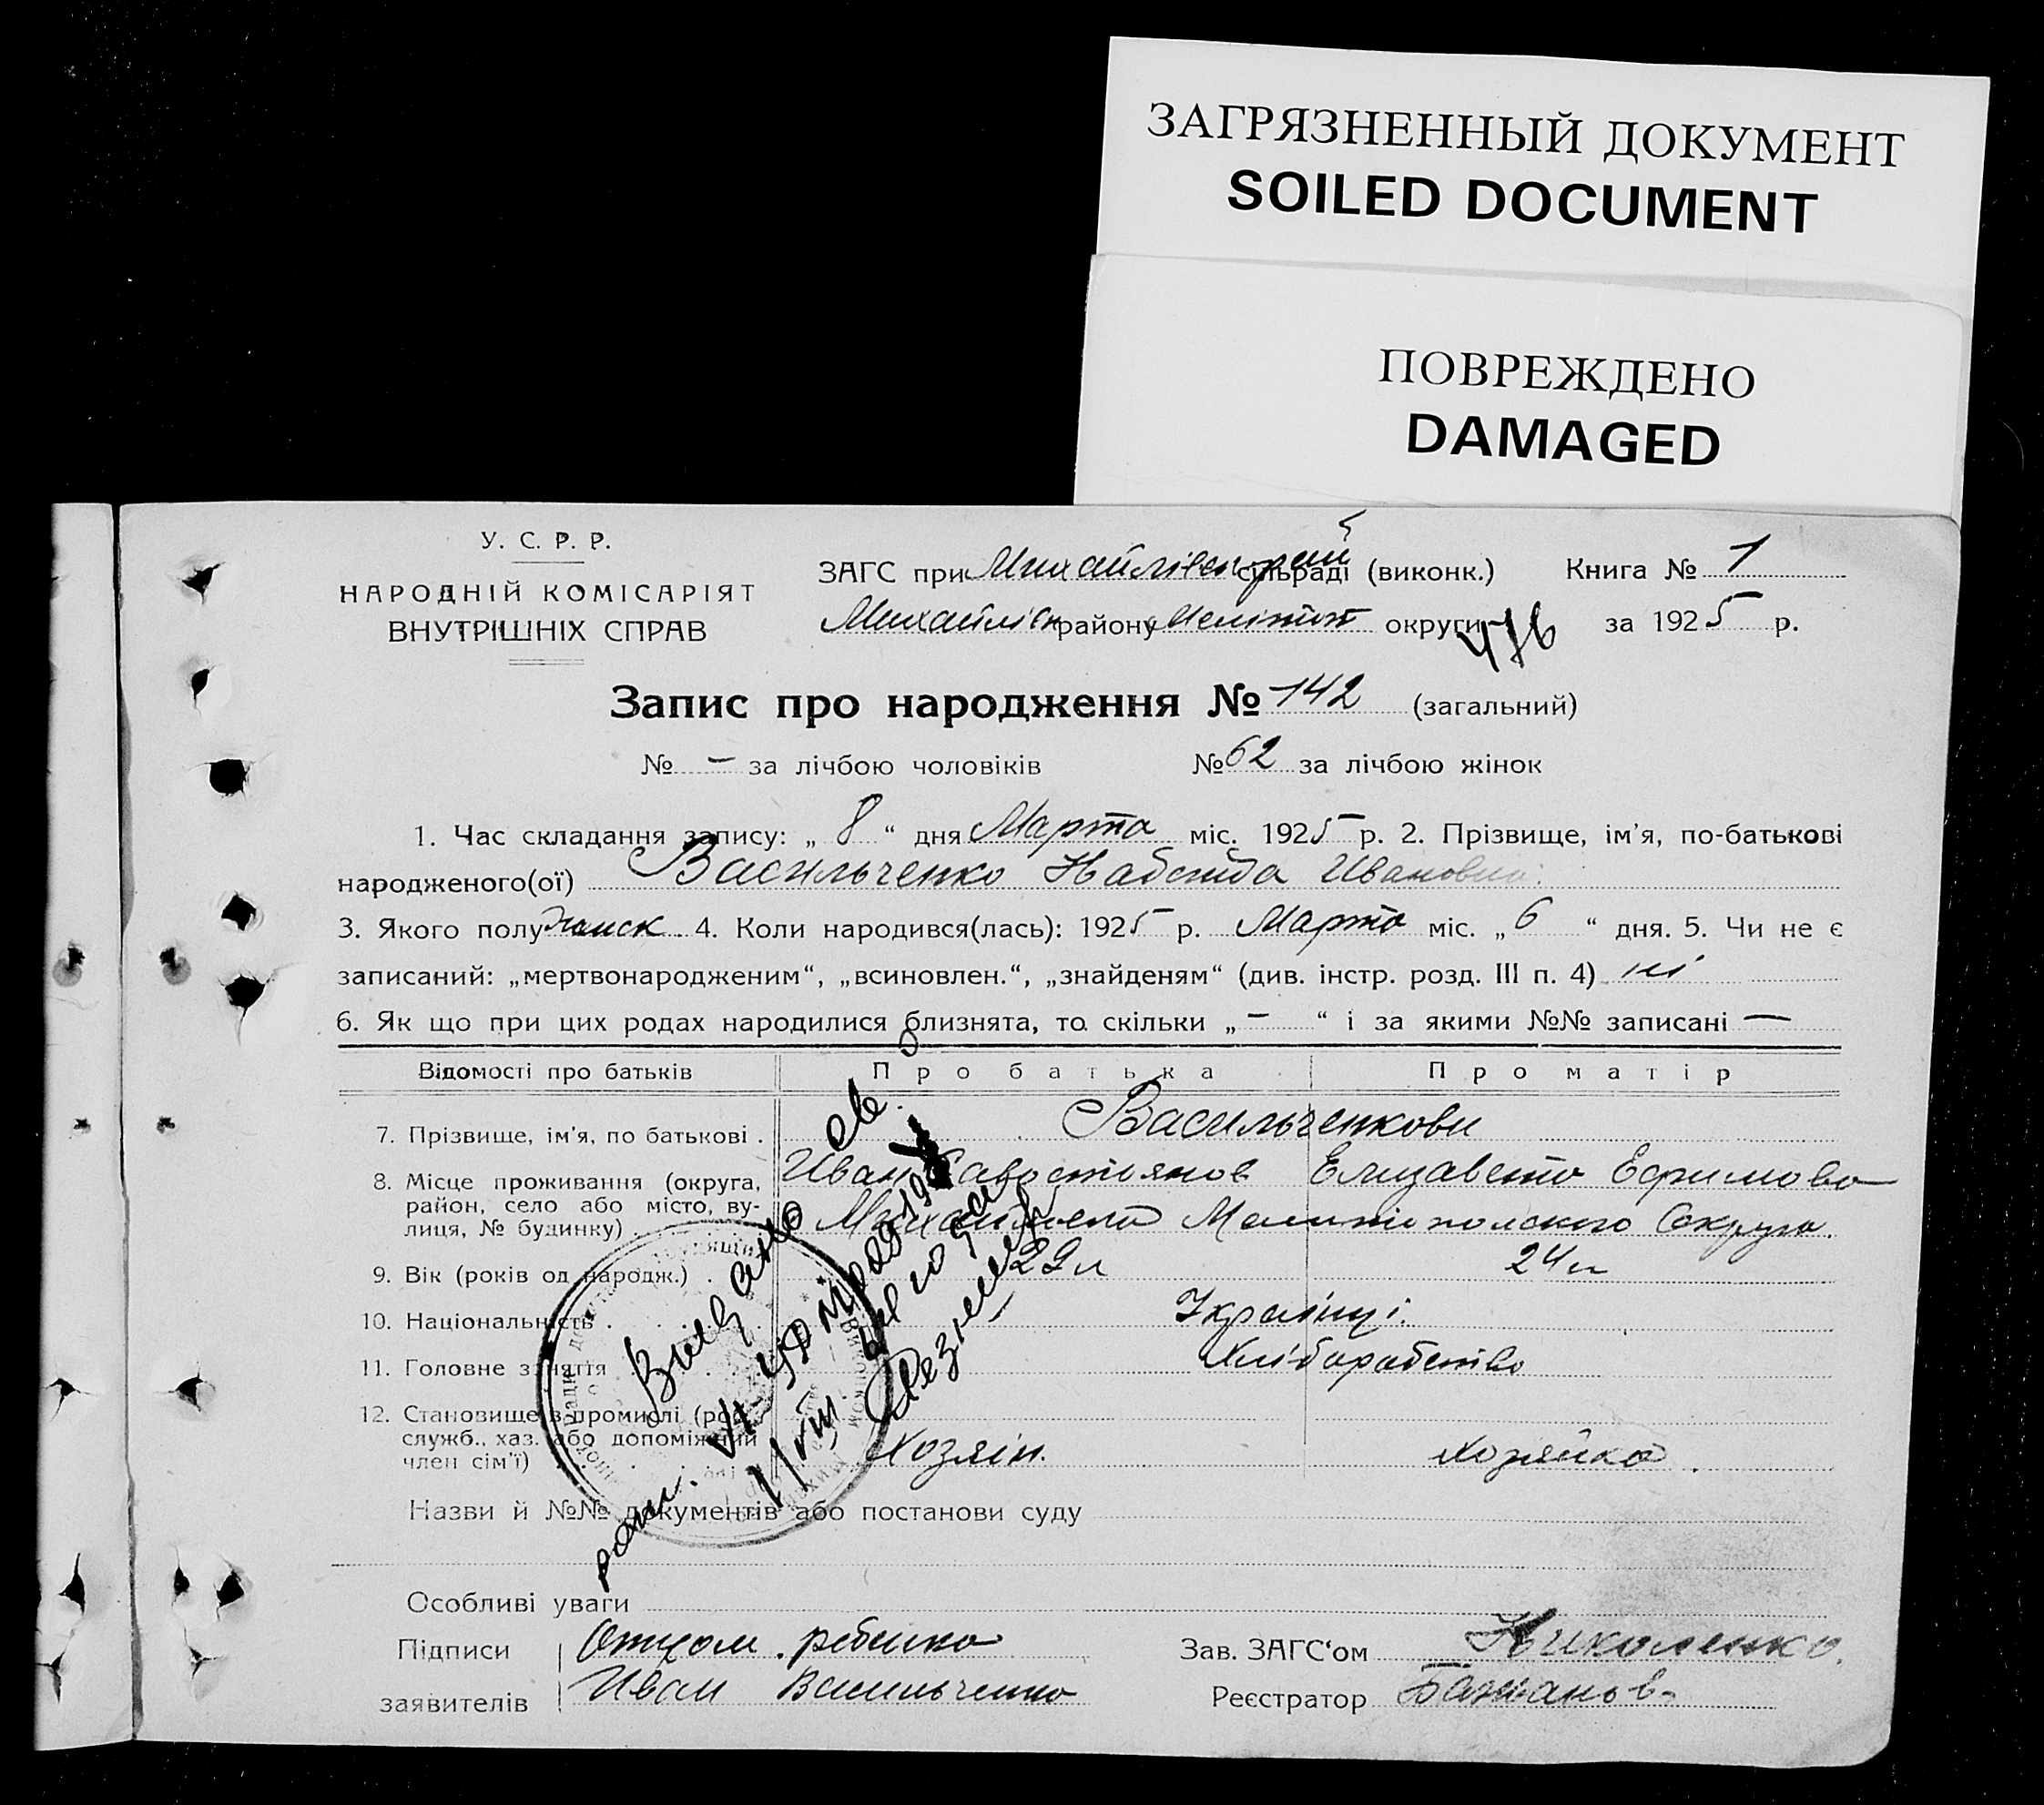 ЗАГРЯЗНЕННЫЙ ДОКУМЕНТ
SOILED DOCUMENT
ПОВРЕЖДЕНО
DAMAGED
У. С. Р. Р.
НАРОДНІЙ КОМІСАРІЯТ
ВНУТРІШНІХ СПРАВ
ЗАГС при сільраді (виконк.) Книга № 1
району Мелітоп округи 476 за 1925 р.
Запис про народження № 142 (загальний)
№ – за лічбою чоловіків № 62 за лічбою жінок
1. Час складання запису: „ 8 “ дня Марта міс. 1925 р. 2. Прізвище, ім'я, по-батькові
народженого(ої) Васильченко Ивановна
3. Якого полу 4. Коли народився(лась): 1925 р. Марта міс. „ 6 “ дня. 5. Чи не є
записаний: „мертвонародженим“, „всиновлен.“, „знайденям“ (див. інстр. розд. III п. 4) ні
6. Як що при цих родах народилися близнята, то скільки „ – “ і за якими №№ записані –
Відомості про батьків Про батька Про матір
7. Прізвище, ім'я, по батькові . Васильченкови
Иван Елизавета Ефимова
8. Місце проживання (округа,
район, село або місто, ву-
лиця, № будинку) Мелитопольского Округа.
9. Вік (років од народж.) . 29 л 24 л
10. Національність . Українці.
11. Головне заняття Хліборобство
12. Становище в промислі (роб.,
служб., хаз. або допоміжний
член сім'ї) Хозяін. Хозяйка
Видано св.
Назви й №№ документів або постанови суду
Особливі уваги
Підписи Отцом ребенка Зав. ЗАГС‘ом Николенко.
заявителів Иван Васильченко Реєстратор